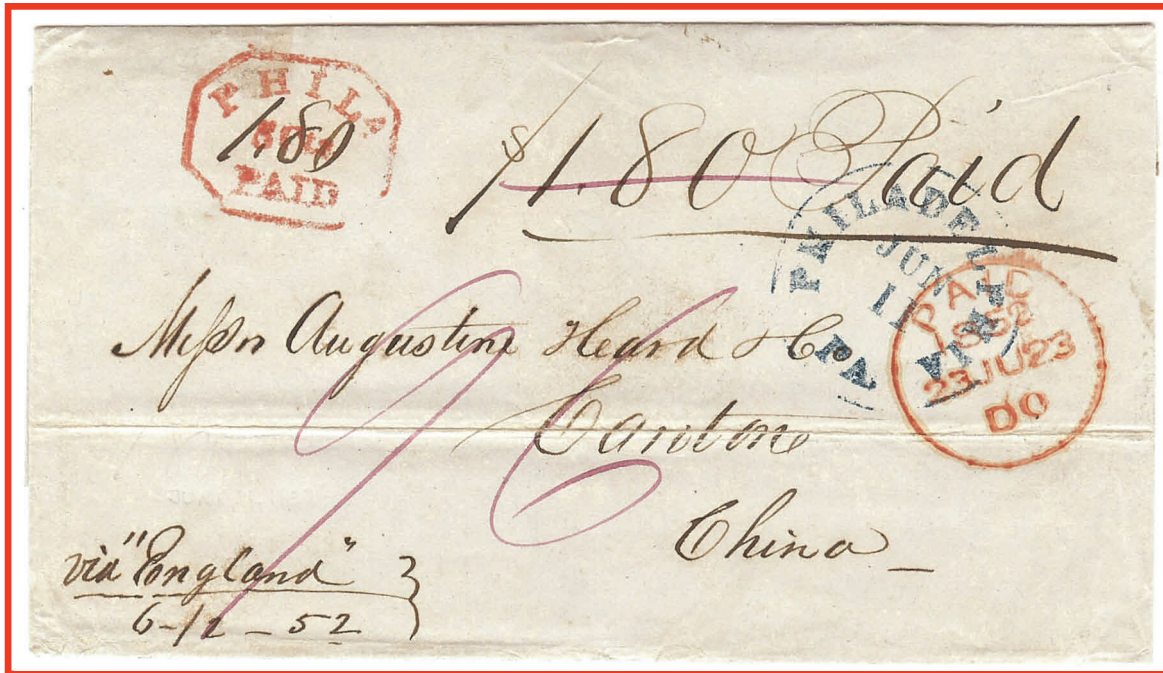 PHILA
1.80
PAID
$1.80 Paid
PHILADELPHIA
JUN
11
PA
PAID
1852
23JU23
DO
Messrs Augustine Heard & Co
Canton
China
96
via "England"
6-12-52